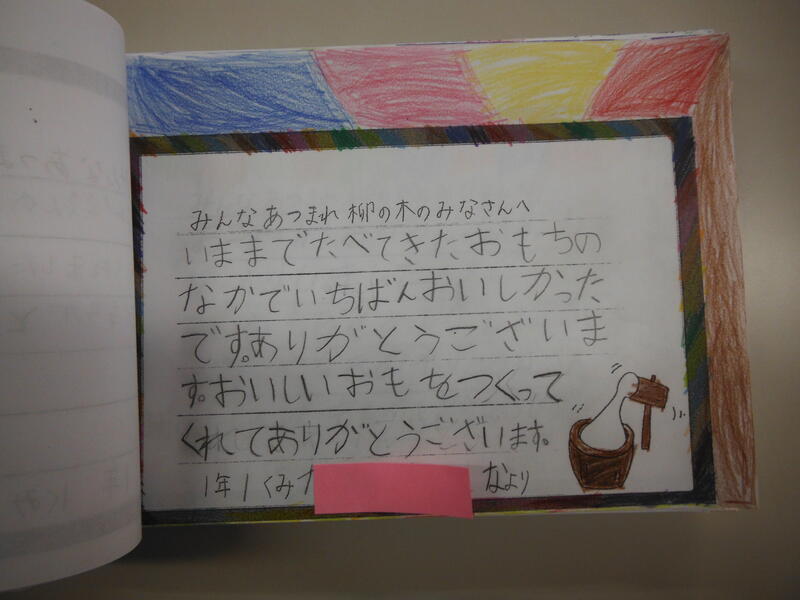 みんなあつまれ 柳の木のみなさんへ
いままでたべてきたおもちの
なかでいちばんおいしかった
です。ありがとうございま
す。おいしいおもをつくって
くれてありがとうございます。
1年1くみ なより